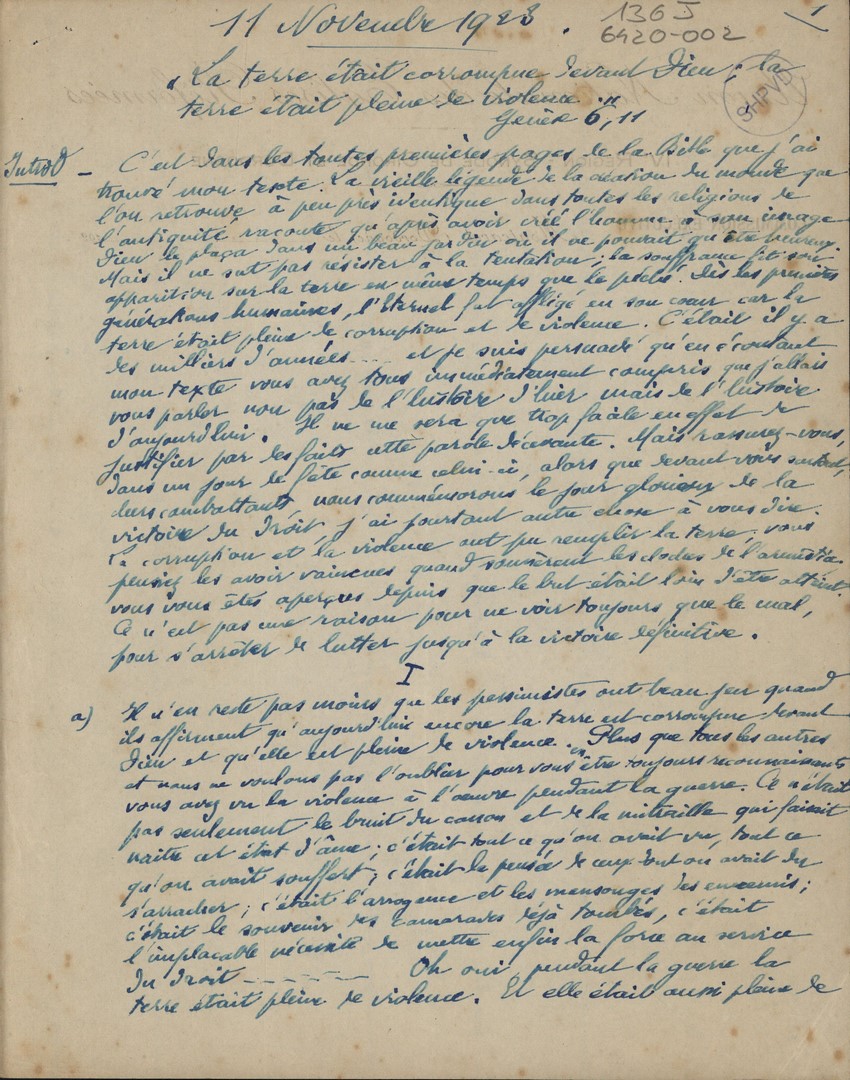 11 Novembre 1923.
136 J
6420-002
1
"La terre était corrompue devant Dieu; la
terre était pleine de violence"
Genèse 6, 11
SHPVD
Introd - C'est dans les toutes premières pages de la Bible que j'ai
trouvé mon texte. La vieille légende de la création du monde que
l'on retrouve à peu près identique dans toutes les religions de
l'antiquité raconte qu'après avoir créé l'homme à son image
Dieu le plaça dans un beau jardin où il ne pouvait qu'être heureux.
Mais il ne sut pas résister à la tentation; la souffrance fit son
apparition sur la terre en même temps que le péché. Dès les premières
générations humaines, l'Eternel fut affligé en son cœur car la
terre était pleine de corruption et de violence. C'était il y a
des milliers d'années .... et je suis persuadé qu'en écoutant
mon texte vous avez tous immédiatement compris que j'allais
vous parler non pas de l'histoire d'hier mais de l'histoire
d'aujourd'hui. Il ne me sera que trop facile en effet de
justifier par des faits cette parole décevante. Mais rassurez-vous,
dans un jour de fête comme celui-ci, alors que devant vous surtout,
chers combattants, nous commémorons le jour glorieux de la
victoire du Droit j'ai pourtant autre chose à vous dire.
La corruption et la violence ont pu remplir la terre; vous
pensiez les avoir vaincues quand sonnèrent les cloches de l'armistice
vous vous êtes aperçus depuis que le but était loin d'être atteint.
Ce n'est pas une raison pour ne voir toujours que le mal,
pour s'arrêter de lutter jusqu'à la victoire définitive.
I
a) Il n'en reste pas moins que les pessimistes ont beau jeu quand
ils affirment qu'aujourd'hui encore la terre est corrompue devant
Dieu et qu'elle est pleine de violence. Plus que tous les autres
et nous ne voulons pas l'oublier pour vous en être toujours reconnaissants
vous avez vu la violence à l'œuvre pendant la guerre. Ce n'était
pas seulement le bruit du canon et de la mitraille qui faisait
naître cet état d'âme; c'était tout ce qu'on avait vu, tout ce
qu'on avait souffert; c'était la pensée de ceux dont on avait dû
s'arracher; c'était l'arrogance et les mensonges des ennemis;
c'était le souvenir des camarades déjà tombés, c'était
l'implacable nécessité de mettre enfin la force au service
du Droit ------ Oh oui, pendant la guerre la
terre était pleine de violence. Et elle était aussi pleine de